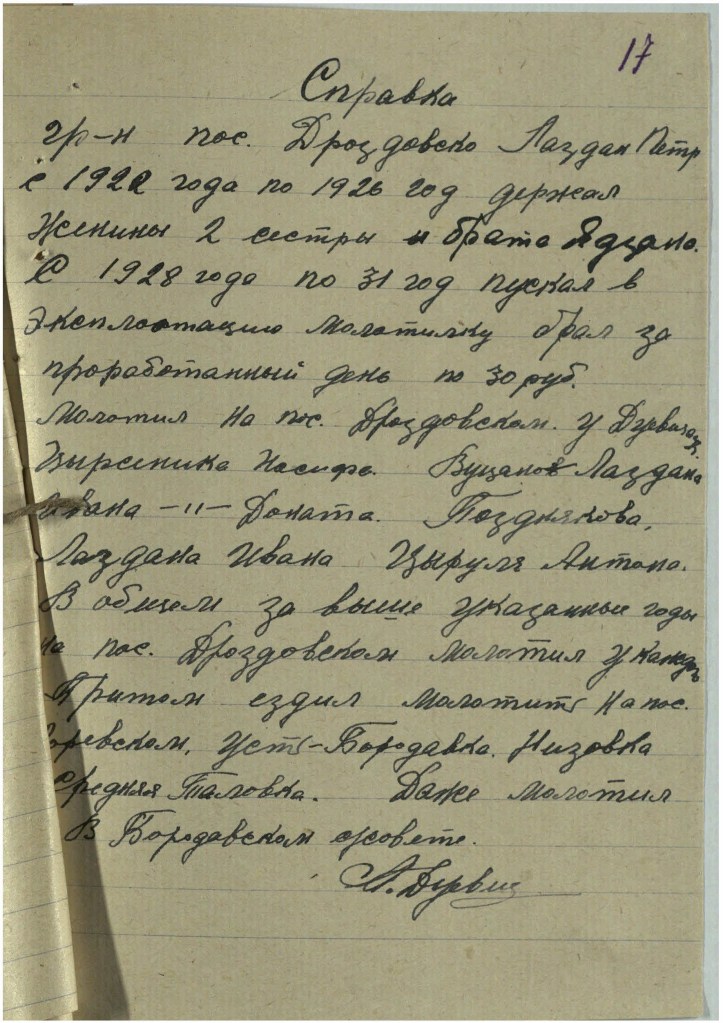 17
Справка
гр-н пос. Дроздовско Лаздан Петр
с 1922 года по 1926 год держал
Женины 2 сестры и брата
С 1928 года по 31 год пускал в
эксплоотацию молотилку брал за
проработанный день по 30 руб.
Молотил на пос. Дроздовском. у
Иосифа. Лаздана
Ивана -"- Доната. Позднякова,
Лаздана Ивана Цыруля Антона.
В общем за выше указанные годы
на пос. Дроздовском молотил у кажд
Притом ездил молотить на пос.
Усть-Бородавка. Низовка
Средняя Таловка. Даже молотил
В Бородавском с/совете.